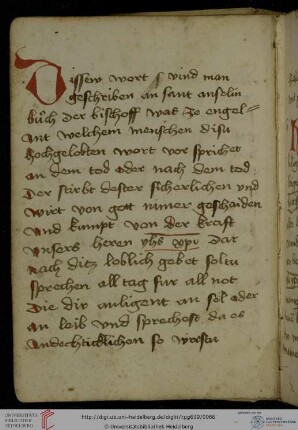 Dissew wort s vind man
geschriben an sant anselm
büch der bischoff was ze engel=
ant welchem menschen disu
hochgelobten wort vor sprichet
an dem tod oder nach dem tod
Der stirbt dester sicherlichen vnd
wirt von gott nimer geschaiden
vnd kumpt von der kraft
vnsers heren yhs xpi Dar
nach ditz loblich gebet soltu
sprechen all tag fur all not
Die dir anligent an sel oder
an leib vnd sprechost da es
andechticklichen so
UNIVERSITÄTS-
BIBLIOTHEK
HEIDELBERG
http://digi.ub.uni-heidelberg.de/diglit/cpg639/0066
© Universitätsbibliothek Heidelberg